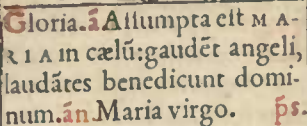 Gloria.ā Aſſumpta eſt MA-
RIA in cælū:gaudēt angeli,
laudātes benedicunt domi-
num.ān Maria virgo. p̄s.